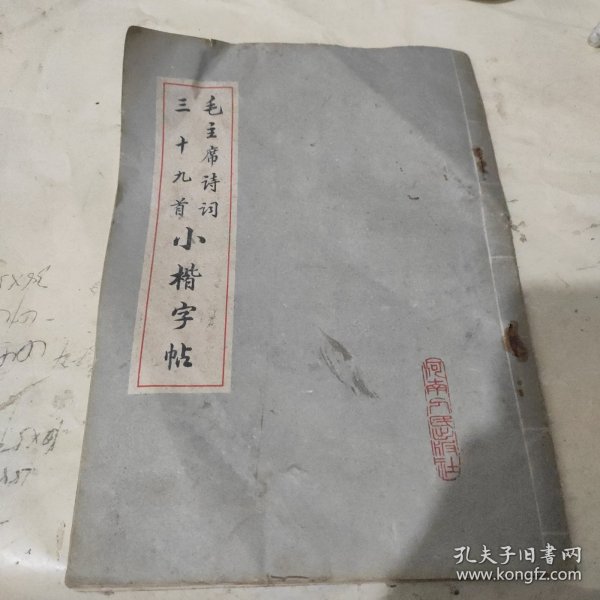 毛主席诗词
三十九首
小楷字帖
河南人民出版社
孔夫子旧书网
www.kongfz.com